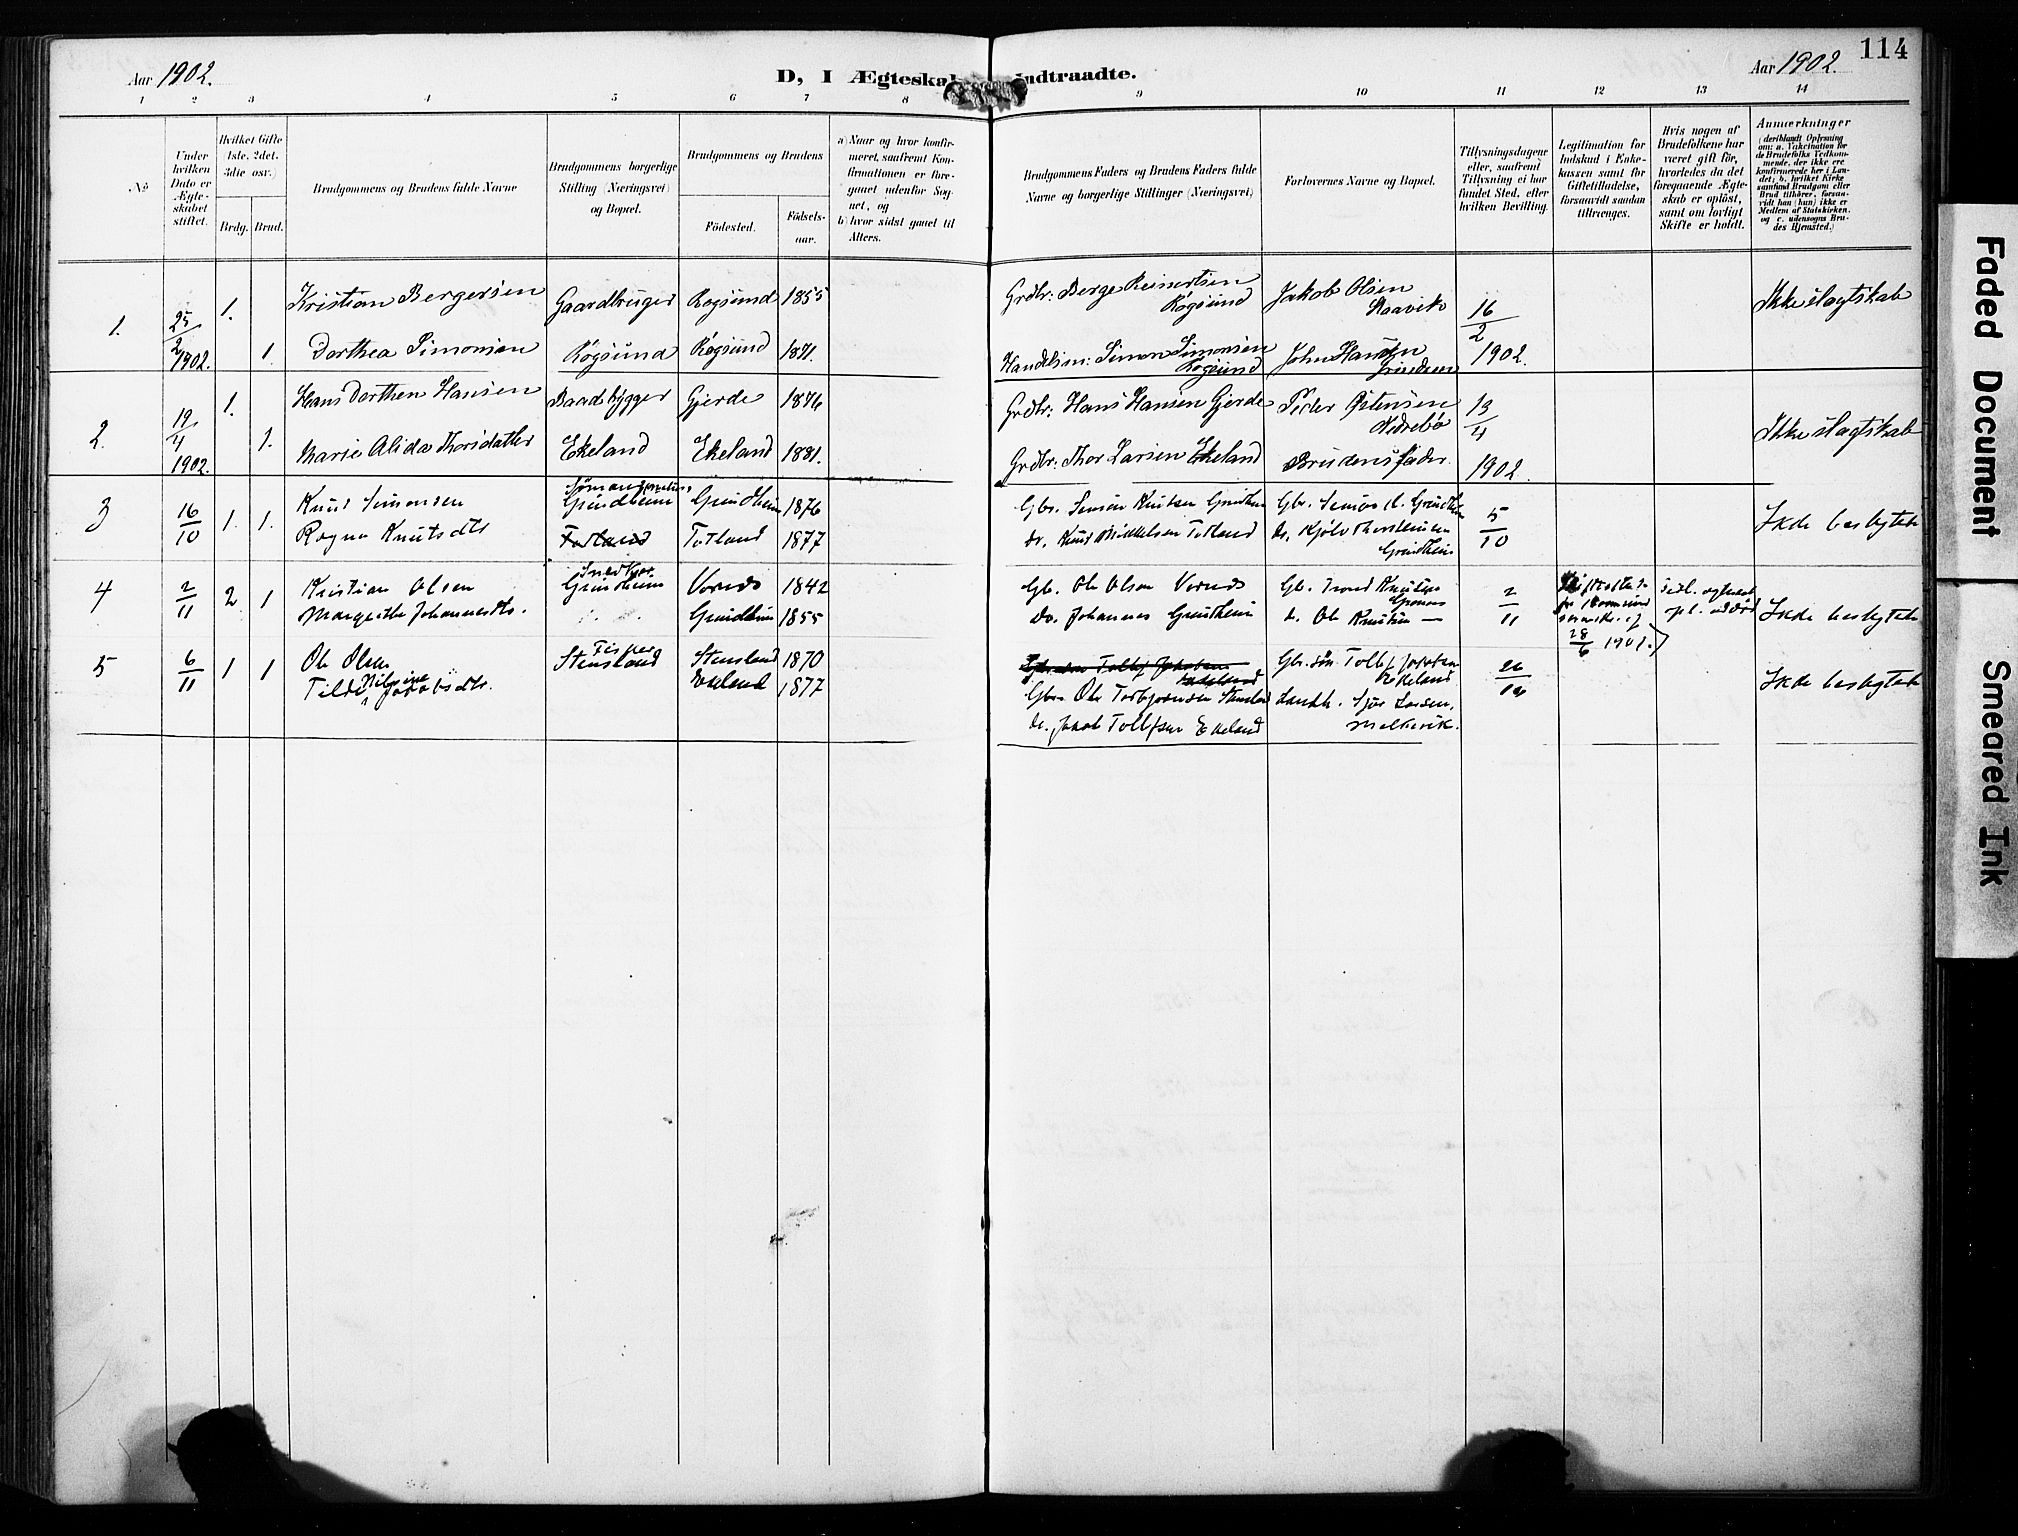 114
Aar 1902.
D, I Ægteskab Indtraadte.
Aar 1902.
1 2 3 4 5 6 7 8 9 10 11 12 13 14
No
Under
hvilken
Dato er
Ægte-
skabet
stiftet.
Hvilket Gifte
1ste, 2det,
3die osv.)
Brdg. Brud.
Brudgommens og Brudens fulde Navne
Brudgommens borgerlige
Stilling (Næringsvei)
og Bopæl.
Brudgommens og Brudens
Födested.
Födsels-
aar.
a) Naar og hvor konfir-
meret, saafremt Kon-
firmationen er fore-
gaaet udenfor Sog-
net, og
b) hvor sidst gaaet til
Alters.
Brudgommens Faders og Brudens Faders fulde
Navne og borgerlige Stillinger (Næringsvei)
Forlovernes Navne og Bopæl.
Tillysningsdagene
eller, saafremt
Tillysning ei har
fundet Sted, efter
hvilken Bevilling.
Legitimation for
Indskud i Enke-
kassen samt for
Giftetilladelse,
forsaavidt saadan
tiltrænges.
Hvis nogen af
Brudefolkene har
været gift för,
hvorledes da det
foregaaende Ægte-
skab er oplöst,
samt om lovligt
Skifte er holdt.
Anmærkninger
(deriblandt Oplysning
om: a. Vakcination for
de Brudefolks Vedkom-
mende, der ikke ere
konfirmerede her i Lan-
det; b. hvilket Kirke
samfund Brudgom eller
Brud tilhörer, forsaa-
vidt han (hun) ikke er
Medlem af Statskirken.
og c. udensogns Bru-
des Hjemsted.)
1. 25/2 1902. 1. Kristian Bergersen Gaardbruger Rogsund 1855 Grdbr: Berge Reinertsen Rögsund Jakob Olsen Haavik 16/2 1902. Ikke slagtskab
1. Dorthea Simonsen Rögsund Rogsund 1871. Handelsm: Simon Simonsen Rögsund John Hansen
2. 19/4 1902. 1. Hans Dorthen Hansen Baadbygger Gjerde 1876 Grdbr: Hans Hansen Gjerde Peder Östensen Nidrebö 13/4 1902. Ikke slagtskab
1. Marie Alida Thorsdatter Ekeland Ekeland 1881. Grdbr: Thor Larsen Ekeland Brudens fader.
3 16/10 1. 1. Knud Simonsen Grindheim Grindheim 1876 Gbr. Simon Knutsen Grindheim Gbr. Simon K. Grindheim 5/10 Ikke beslegtede
Ragna Knutsdtr Totland Totland 1877 do. Knud Mikkelsen Totland do. Kjöle Thorstensen Grindheim
4 2/11 2 1 Kristian Olsen Snedker Grindheim Vornes 1842 Gb. Ole Olsen Vornes Gb. Knutsen 2/11 Ikke beslegtede
Margrethe Johannesdtr. Grindheim 1855 do. Johannes Grindheim do. Ole Knutsen —
28/6 1901.)
5 6/11 1 1 Ole Olsen Fisker Stensland Stensland 1870 Gbr. sön Tollef Jakobsen Ekeland 26/10 Ikke beslegtede
Tilde Nilsine Jakobsdtr. Ekeland 1877 Gbr. Ole Torbjornsen Stensland Landh. Sjur Larsen,
do. Jakob Tollefsen Ekeland Melkevik.
Faded Document
Smeared Ink